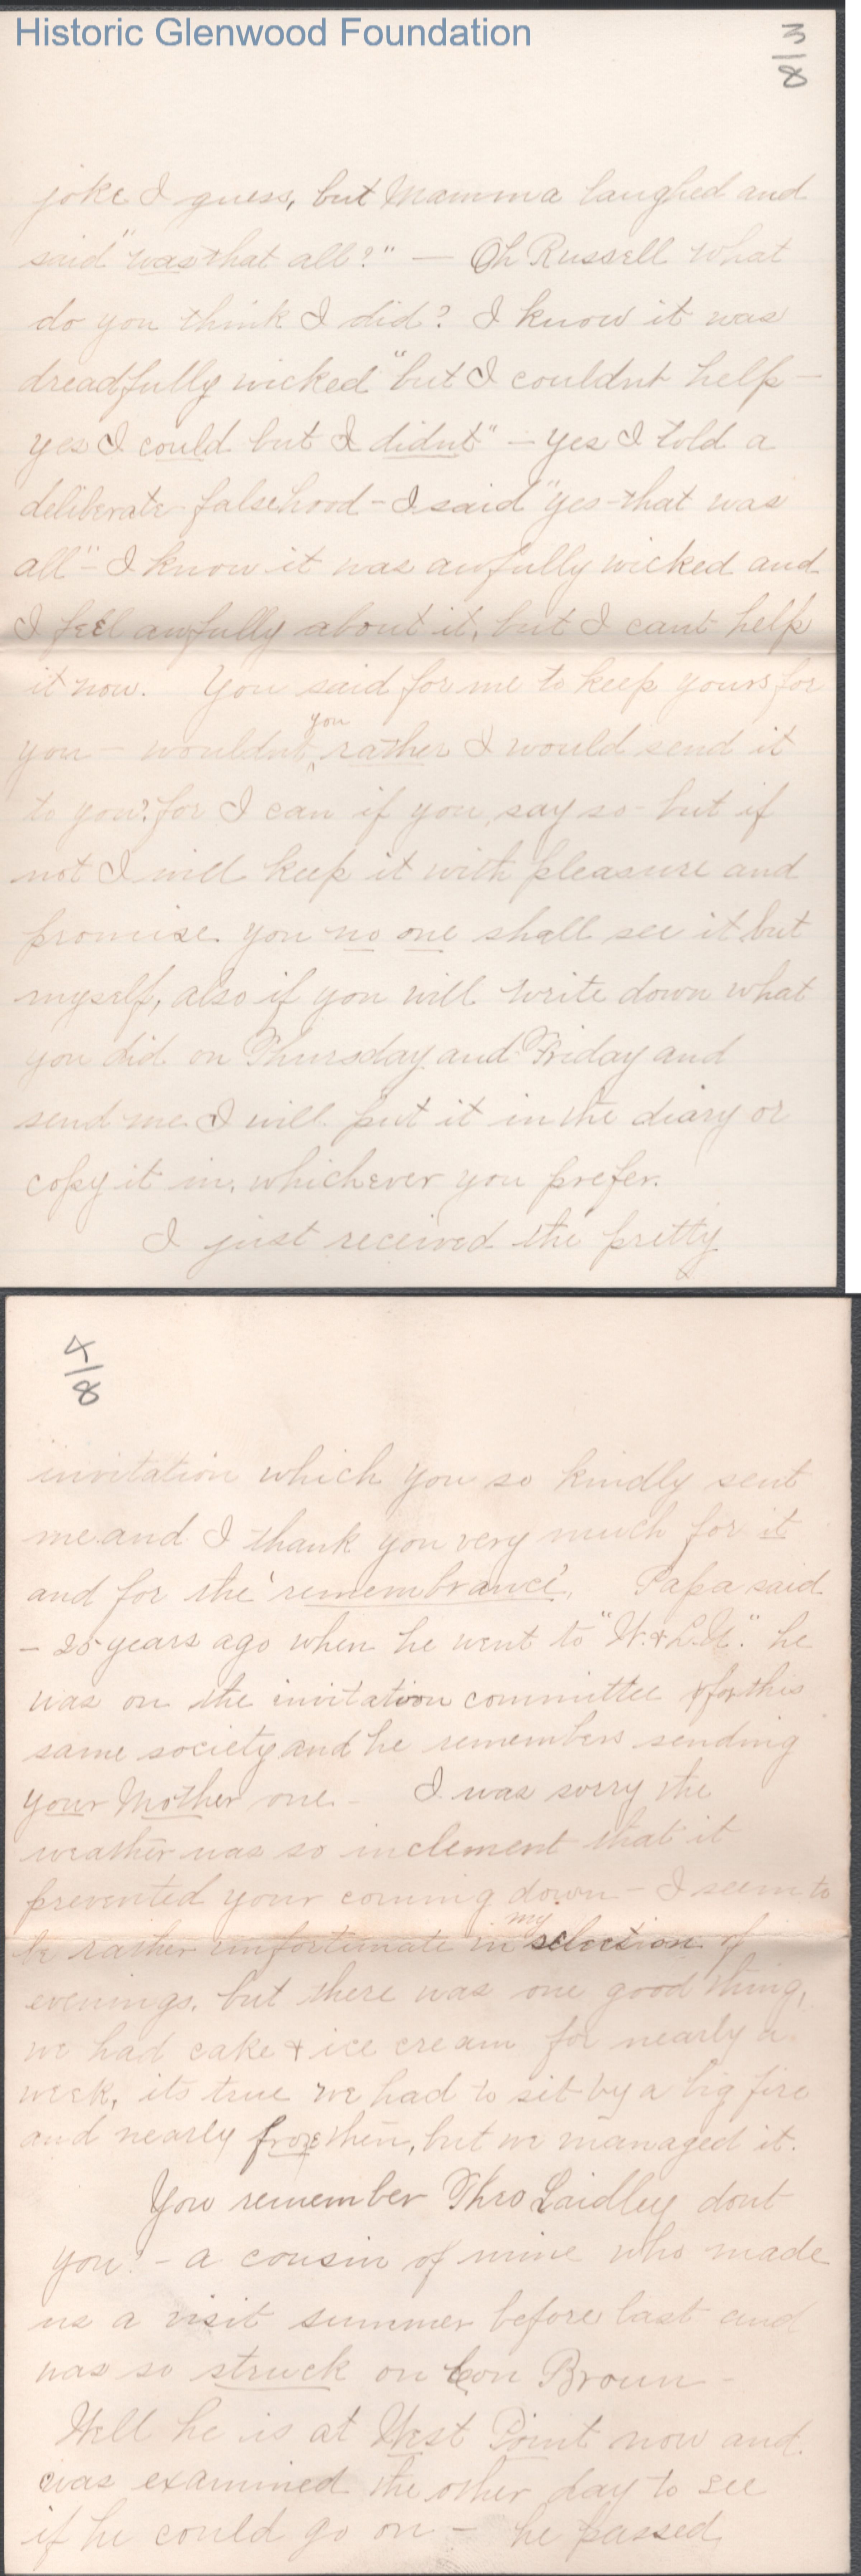 Historic Glenwood Foundation
3/8
joke I guess, but Mamma laughed and
said "was that all?" — Oh Russell what
do you think I did? I know it was
dreadfully wicked "but I couldnt help —
yes I could but I didnt" — yes I told a
deliberate falsehood — I said "yes that was
all" — I know it was awfully wicked and
I feel awfully about it, but I cant help
it now. You said for me to keep yours for
you — wouldnt you rather I would send it
to you? for I can if you say so — but if
not I will keep it with pleasure and
promise you no one shall see it but
myself, also if you will write down what
you did on Thursday and Friday and
send me I will put it in the diary or
copy it in, whichever you prefer.
I just received the pretty
4/8
invitation which you so kindly sent
me and I thank you very much for it
and for the 'remembrance'. Papa said
— 25 years ago when he went to "W. & L. U." he
was on the invitation committee for this
same society and he remembers sending
your Mother one — I was sorry the
weather was so inclement that it
prevented your coming down — I seem to
be rather unfortunate in my selection of
evenings, but there was one good thing,
we had cake & ice cream for nearly a
week, its true we had to sit by a big fire
and nearly froze then, but we managed it.
You remember Theo Laidley dont
you? — a cousin of mine who made
us a visit summer before last and
was so struck on Con Broun —
Well he is at West Point now and
was examined the other day to see
if he could go on — he passed